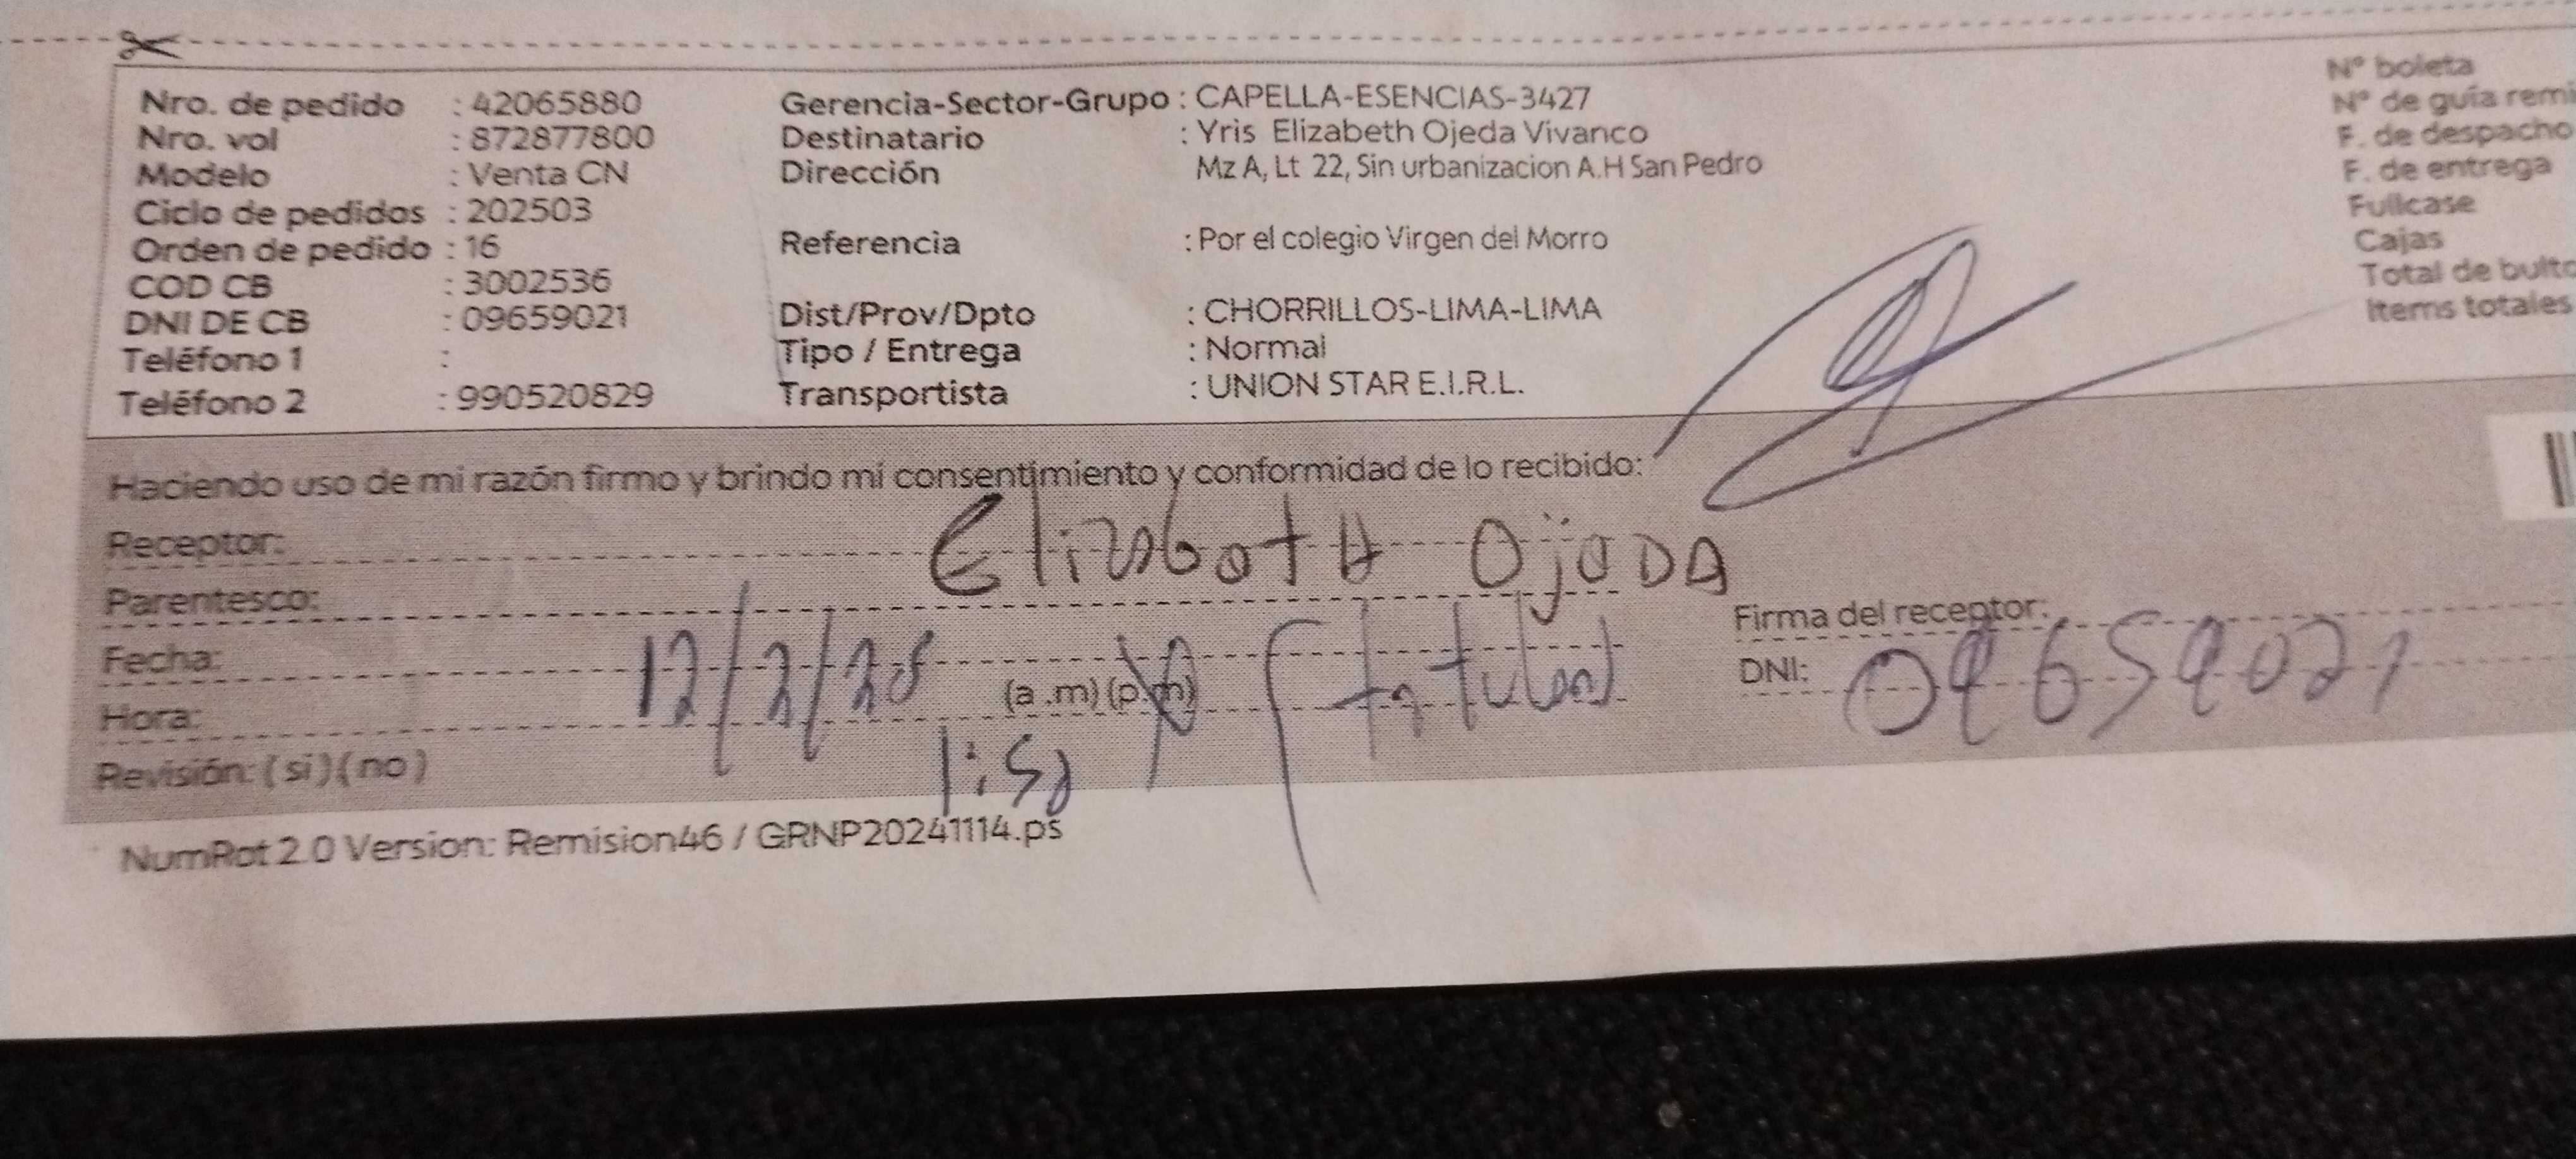 Nro. de pedido : 42065880 Gerencia-Sector-Grupo : CAPELLA-ESENCIAS-3427 N° boleta
Nro. vol : 872877800 Destinatario : Yris Elizabeth Ojeda Vivanco N° de guía remi
Modelo : Venta CN Dirección Mz A, Lt 22, Sin urbanizacion A.H San Pedro F. de despacho
Ciclo de pedidos : 202503 F. de entrega
Orden de pedido : 16 Referencia : Por el colegio Virgen del Morro Fullcase
COD CB : 3002536 Cajas
DNI DE CB : 09659021 Dist/Prov/Dpto : CHORRILLOS-LIMA-LIMA Total de bulto
Teléfono 1 : Tipo / Entrega : Normal Items totales
Teléfono 2 : 990520829 Transportista : UNION STAR E.I.R.L.
Haciendo uso de mi razón firmo y brindo mi consentimiento y conformidad de lo recibido:
Receptor: Elizabeth Ojeda
Parentesco:
Firma del receptor:
Fecha: 12/2/25
DNI: 09659021
Hora: (a.m) (p.m)
1:50
Revisión: (si) (no)
NumRot 2.0 Version: Remision46 / GRNP20241114.ps